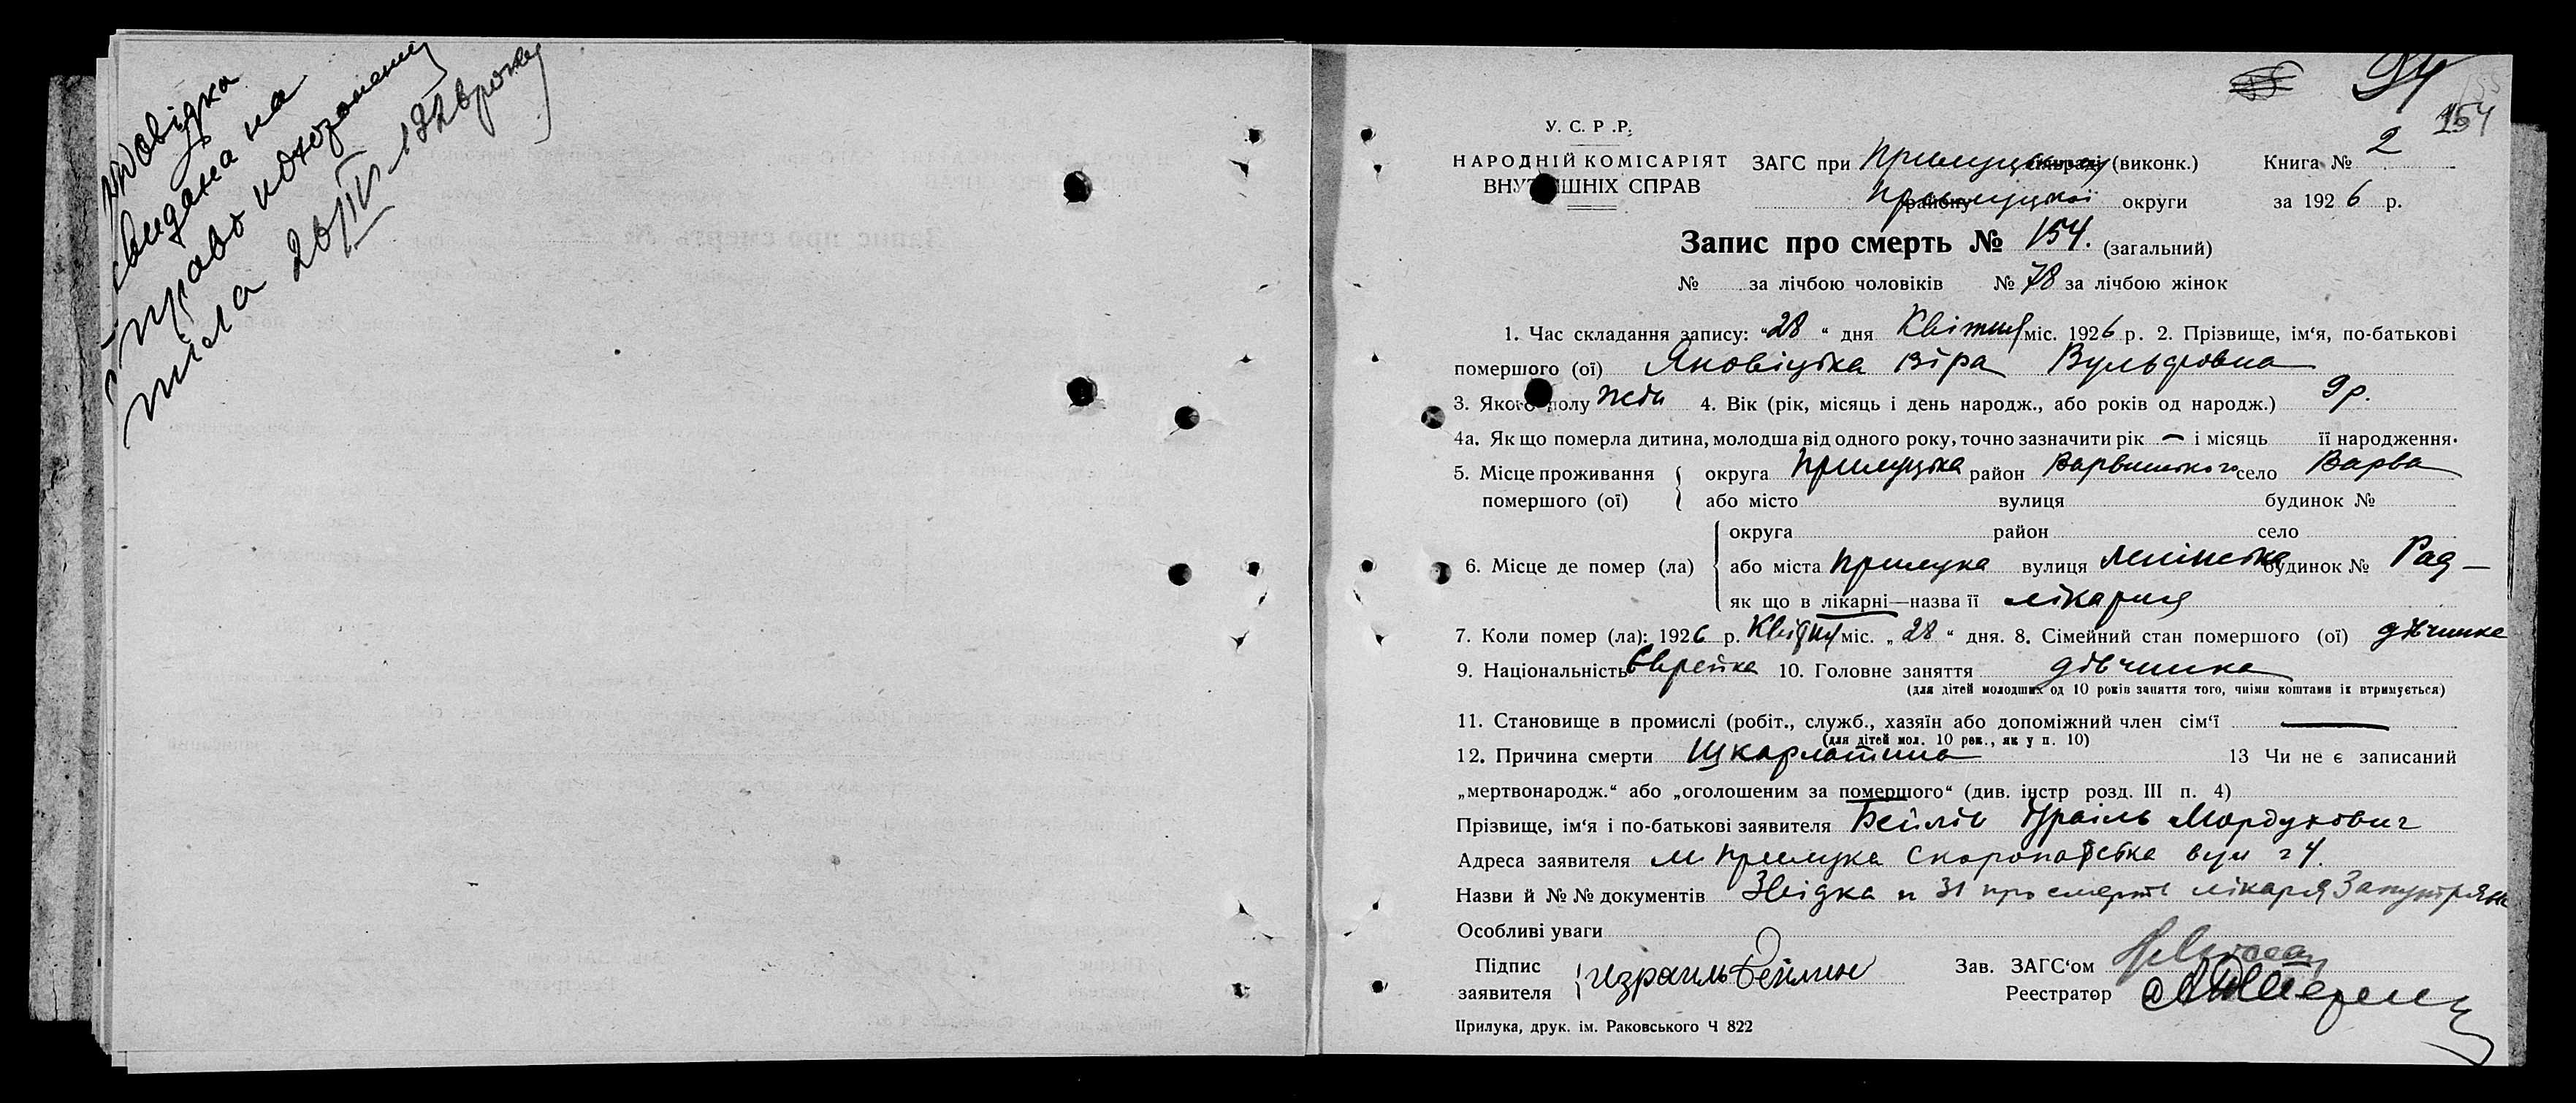 Довідка
видана на
право похорону
тіла 28/IV 1926 року
94
154
У. С. Р. Р.
НАРОДНІЙ КОМІСАРІЯТ
ВНУТРІШНІХ СПРАВ
ЗАГС при Прилуцькому (виконк.) Книга № 2
району Прилуцької округи за 1926 р.
Запис про смерть № 154. (загальний)
№ за лічбою чоловіків № 78 за лічбою жінок
1. Час складання запису: "28" дня Квітня міс. 1926 р. 2. Прізвище, ім'я, по-батькові
помершого (ої) Яновіцька Віра Вульфовна
3. Якого полу жін 4. Вік (рік, місяць і день народж., або років од народж.) 9 р.
4а. Як що померла дитина, молодша від одного року, точно зазначити рік — і місяць її народження.
5. Місце проживання округа Прилуцька район Варвинського село Варва
помершого (ої) або місто вулиця будинок №
округа район село
6. Місце де помер (ла) або міста Прилука вулиця Ленінська будинок № Рад-
як що в лікарні—назва її лікарня
7. Коли помер (ла): 1926 р. Квітня міс. „28" дня. 8. Сімейний стан помершого (ої) дівчинка
9. Національність Єврейка 10. Головне заняття дівчинка
(для дітей молодших од 10 років заняття того, чиїми коштами їх втримується)
11. Становище в промислі (робіт., служб., хазяїн або допоміжний член сім'ї —
(для дітей мол. 10 рок., як у п. 10)
12. Причина смерти Шкарлатина 13 Чи не є записаний
„мертвонародж." або „оголошеним за помершого" (див. інстр розд. III п. 4)
Прізвище, ім'я і по-батькові заявителя Бейлін Ізраїль Мордухович
Адреса заявителя м. Прилука Скоропадська вул 24.
Назви й №№ документів Звідка п 31 про смерть лікаря
Особливі уваги
Підпис
заявителя Израиль Бейлин
Зав. ЗАГС'ом
Реєстратор
Прилука, друк. ім. Раковського Ч 822